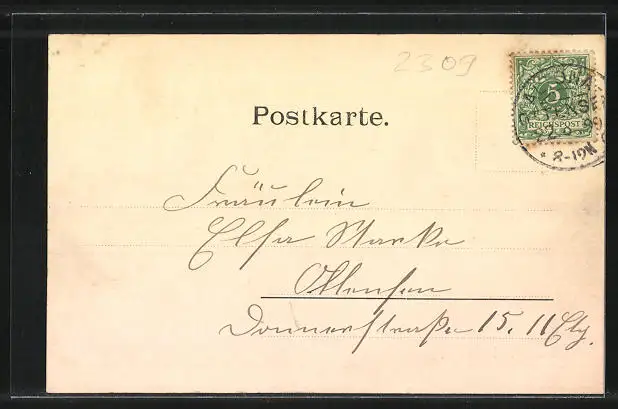 2309
5
REICHSPOST
22.8.99
* 8-12N
Postkarte.
Fräulein
Elsa Starke
Ottensen
Donnerstraße 15. II Etg.